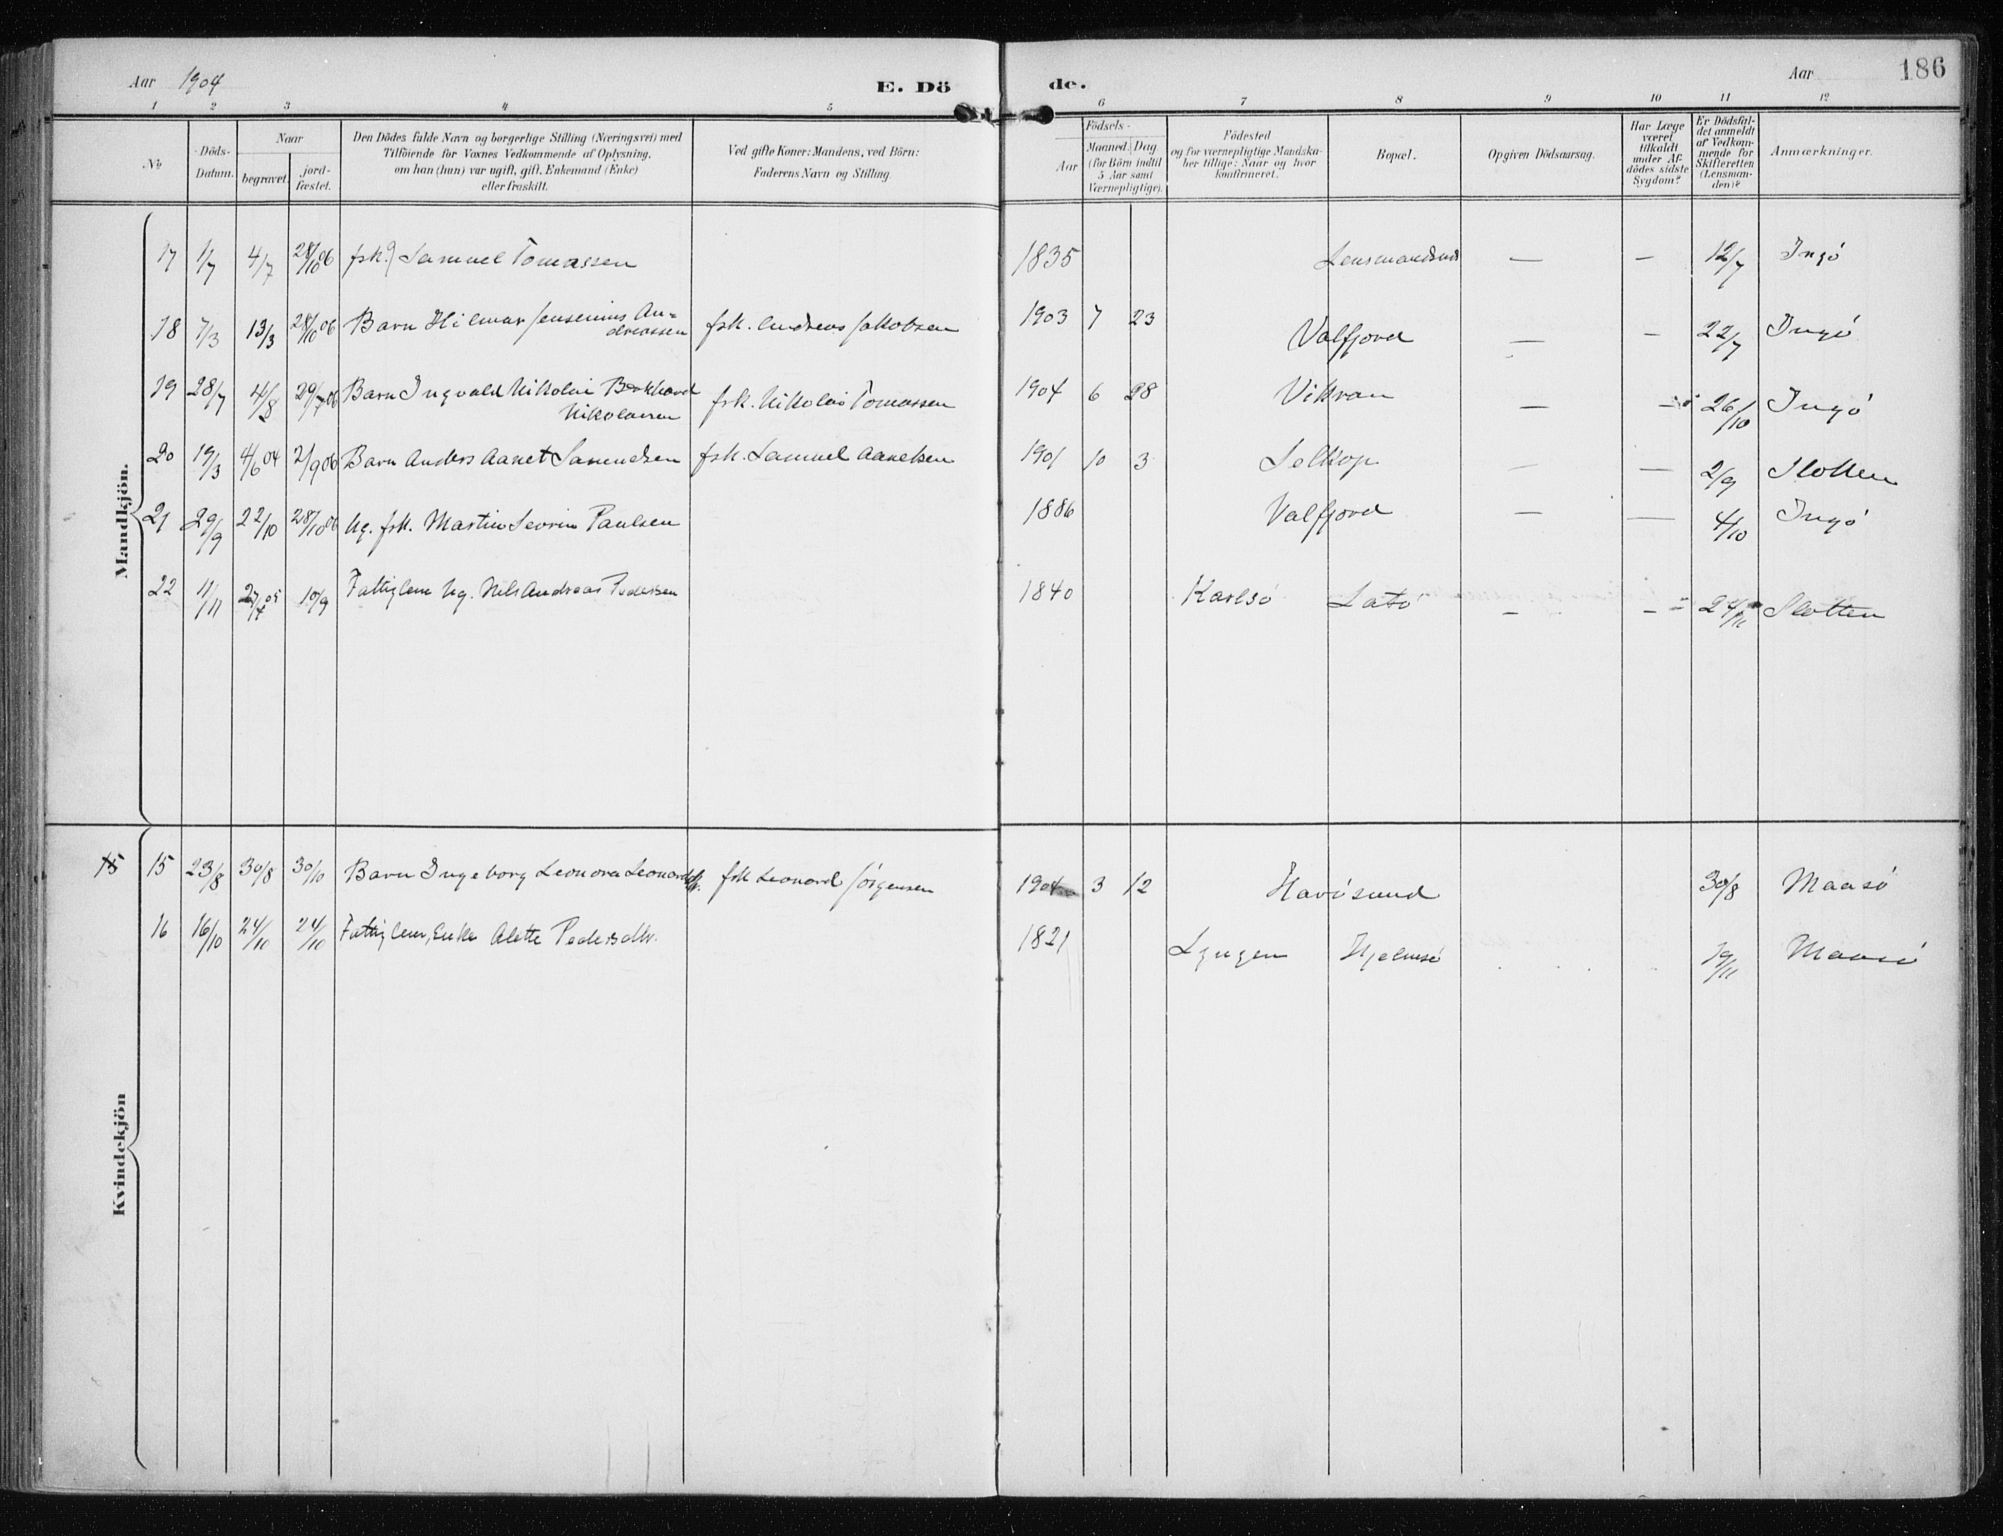 Aar 1904 E. Dö de. Aar 186
1 2 3 4 5 6 7 8 9 10 11 12
No
Döds-Datum.
Naar
begravet.
jord-fæstet.
Den Dödes fulde Navn og borgerlige Stilling (Næringsvei) med
Tilföiende for Voxnes Vedkommende af Oplysning,
om han (hun) var ugift, gift, Enkemand (Enke)
eller fraskilt.
Ved gifte Koner: Mandens, ved Börn:
Faderens Navn og Stilling.
Födsels-
Aar
Maaned. Dag
(for Börn indtil
5 Aar samt
Værnepligtige).
Födested
og for værnepligtige Mandska-
ber tillige: Naar og hvor
konfirmeret.
Bopæl.
Opgiven Dödsaarsag.
Har Læge
været
tilkaldt
under Af-
dödes sidste
Sygdom?
Er Dödsfal-
det anmeldt
af Vedkom-
mende for
Skifteretten
(Lensman-
den)?
Anmærkninger.
Mandkjön.
17 1/7 4/7 28/10 06 fsk. Samuel Tomassen 1835 — — 12/7 Ingö
18 7/3 13/3 28/10 06 Barn Hilmar Jensenius An=
dreassen fsk. Andreas Jakobsen 1903 7 23 Valfjord — — 22/7 Ingö
19 28/7 4/8 29/7 06 Barn Ingvald Nikolai
Nikolaisen fsk. Nikolai Tomassen 1904 6 28 Vikran — — 26/10 Ingö
20 19/3 4/6 04 2/9 06 Barn Anders Aanet Samuelsen fsk. Samuel Aanetsen 1901 10 3 Selkop — — 2/9 Slotten
21 29/9 22/10 28/10 06 Ug. fsk. Martin Sevrin Paulsen 1886 Valfjord — — 4/10 Ingö
22 11/11 27/4 05 10/9 Fattiglem Ug. Nils Andreas Pedersen 1840 Karlsö Latö — — 24/11 Slotten
Kvindekjön
15 15 23/8 30/8 30/10 Barn Ingeborg Leonora Leonardsdtr. fsk Leonard Jörgensen 1904 3 12 Havösund 30/8 Maasö
16 16/10 24/10 24/10 Fattiglem, Enke Alette Pedersdtr. 1821 Lyngen Hjelmsö 19/11 Maasö